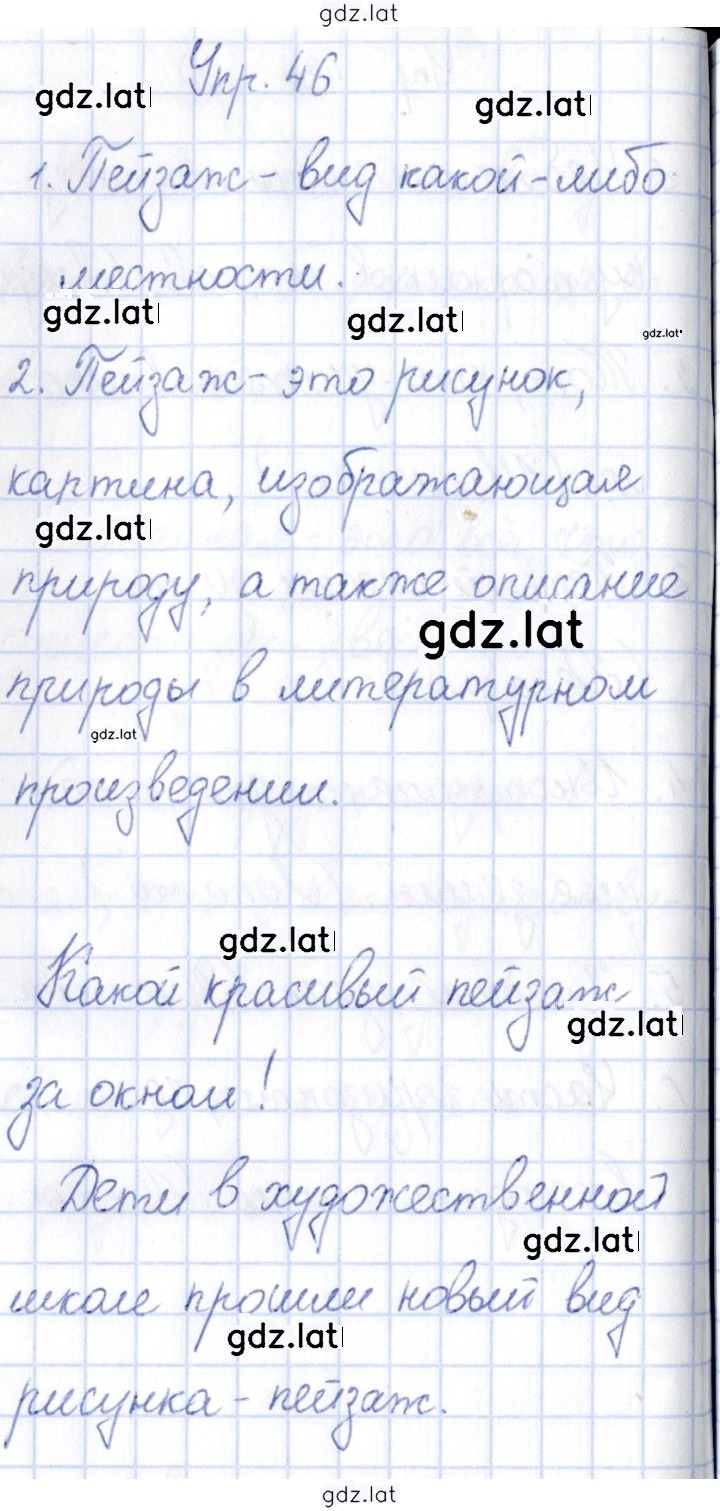 gdz.lat
Упр. 46
gdz.lat
gdz.lat
1. Пейзаж - вид какой-либо
местности.
gdz.lat
gdz.lat
gdz.lat
2. Пейзаж - это рисунок,
картина, изображающая
gdz.lat
природу, а также описание
gdz.lat
природы в литературном
gdz.lat
произведении.
gdz.lat
Какой красивый пейзаж
gdz.lat
за окном!
Дети в художественной
gdz.lat
школе прошли новый вид
gdz.lat
рисунка - пейзаж.
gdz.lat